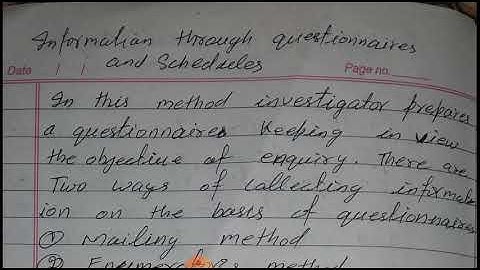 Information through questionnaires
and Schedules
Date / / Page no.
In this method investigator prepares
a questionnaires Keeping in view
the objective of enquiry. There are
Two ways of collecting informat
ion on the basis of questionnaires
① Mailing method
② Enumerator's method